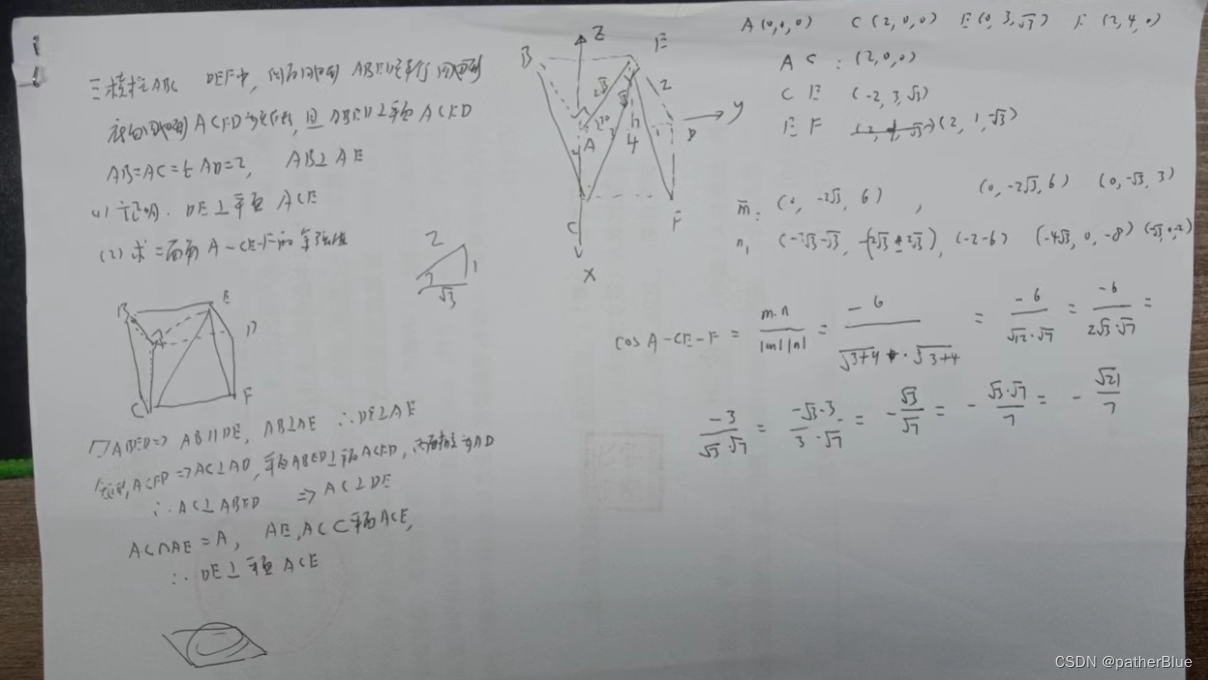 三棱柱ABC DEF中, 侧面四边形ABED是平行四边形
底面四边形ACFD为矩形, 且ABED⊥平面ACFD
AB=AC=½AD=2, AB⊥AE
(1) 证明. DE⊥平面ACE
(2) 求二面角A-CE-F的余弦值
2
1
√3
B
E
A
D
C
F
▱ABED=> AB∥DE, AB⊥AE ∴DE⊥AE
矩形ACFD=>AC⊥AD, 平面ABED⊥平面ACFD, 为AD
∴AC⊥ABED => AC⊥DE
AC∩AE=A, AE, AC⊂平面ACE,
∴DE⊥平面ACE
B
Z
E
2√3
√3
2
y
A
3
4
1
D
C
F
X
A(0,0,0) C(2,0,0) E(0,3,√3) F(2,4,0)
AC: (2,0,0)
CE (-2,3,√3)
EF (2,1,-√3)
m: (0, -2√3, 6), (0, -2√3, 6) (0, -√3, 3)
n, (-4√3, 0, -8) (-√3, 0, -2)
cos A-CE-F = m·n / |m||n| = -6 / √3+9 · √3+4 = -6 / √12·√7 = -6 / 2√3·√7 =
-3 / √3·√7 = -√3·3 / 3·√7 = -√3/√7 = -√3·√7/7 = -√21/7
CSDN @patherBlue